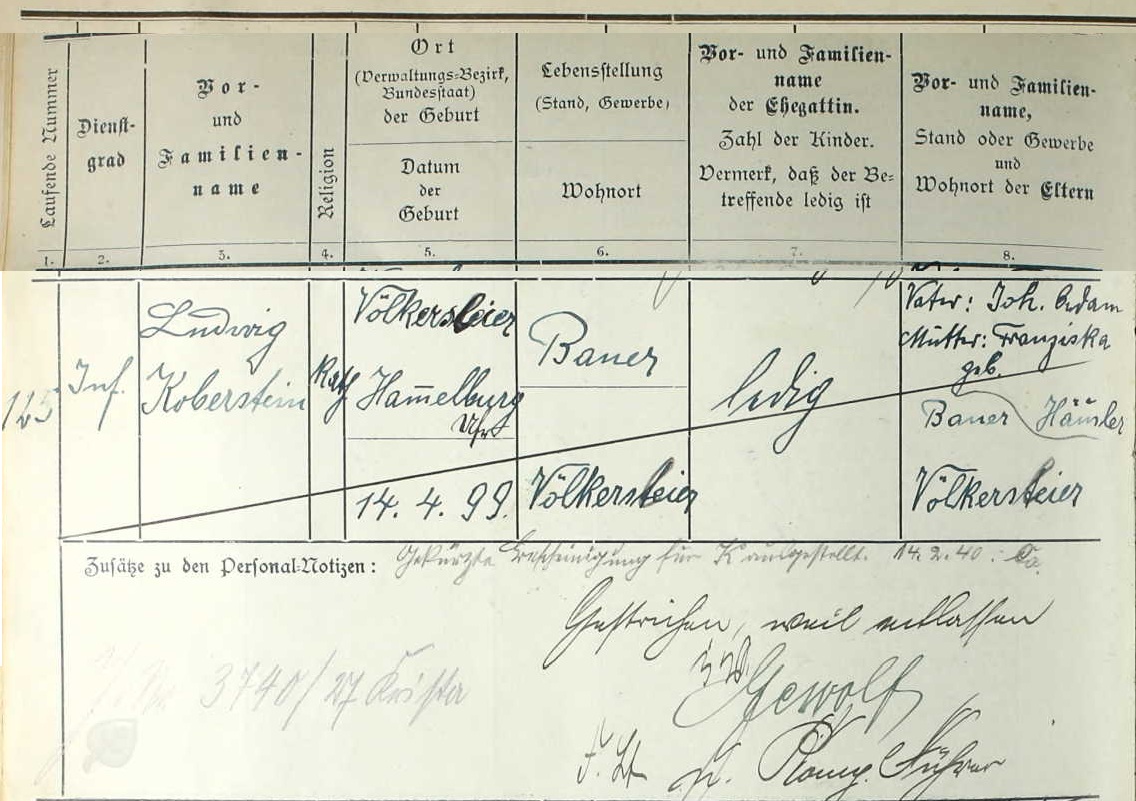 Laufende Nummer
Dienst-
grad
Vor-
und
Familien-
name
Religion
Ort
(Verwaltungs-Bezirk,
Bundesstaat)
der Geburt
Datum
der
Geburt
Lebensstellung
(Stand, Gewerbe)
Wohnort
Vor- und Familien-
name
der Ehegattin.
Zahl der Kinder.
Vermerk, daß der Be-
treffende ledig ist
Vor- und Familien-
name,
Stand oder Gewerbe
und
Wohnort der Eltern
1. 2. 3. 4. 5. 6. 7. 8.
125
Inf.
Ludwig
Koberstein
Kath
Völkersleier
Ham̅elburg
Ufr
14. 4. 99.
Bauer
Völkersleier
ledig
Vater: Joh. Adam
Mutter: Franziska
geb.
Bauer Häusler
Völkersleier
Zusätze zu den Personal-Notizen: Gekürzte Bescheinigung für K ausgestellt. 14.2.40.
Gestrichen, weil entlassen
Gewolf
3740/27
F. Lt u. Komp. Führer